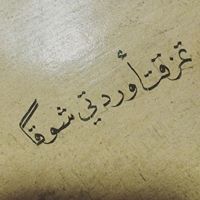 تمزقت أوردتي شوقاً